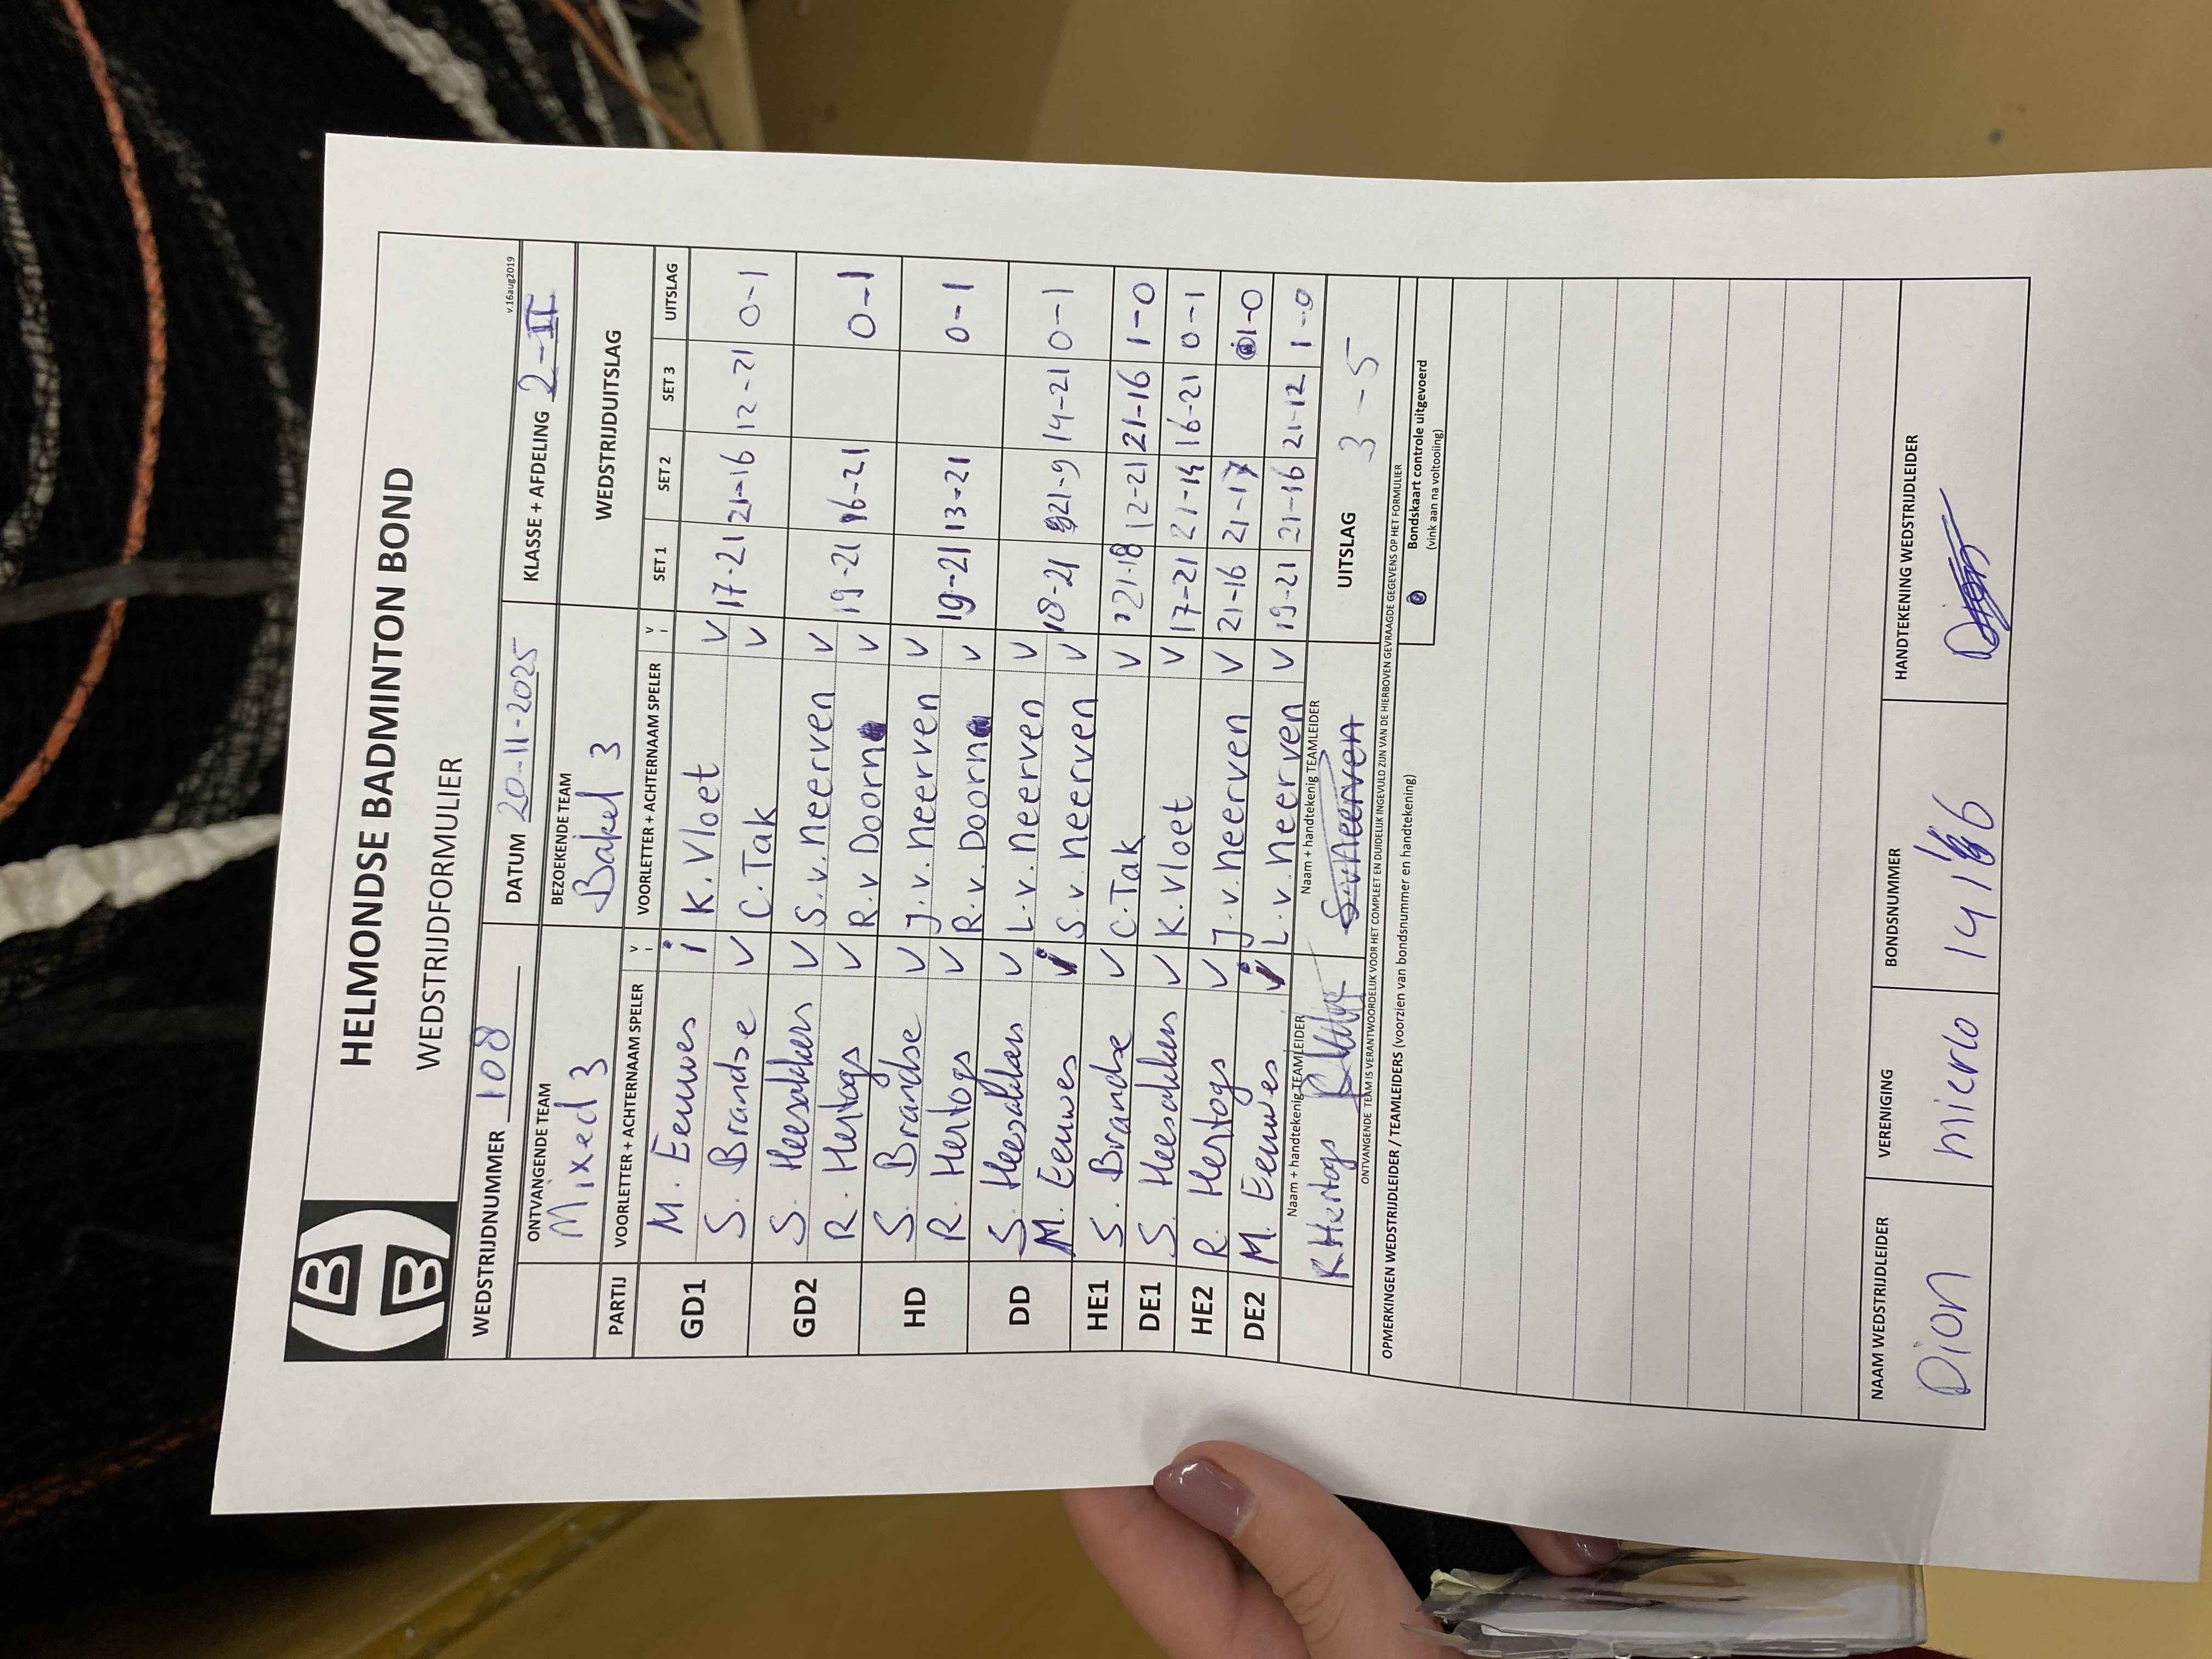 HELMONDSE BADMINTON BOND
WEDSTRIJDFORMULIER
v.16aug2019
WEDSTRIJDNUMMER 108 DATUM 20-11-2025 KLASSE + AFDELING 2-II
ONTVANGENDE TEAM BEZOEKENDE TEAM WEDSTRIJDUITSLAG
Mixed 3 Bakel 3
PARTIJ VOORLETTER + ACHTERNAAM SPELER V I VOORLETTER + ACHTERNAAM SPELER V I SET 1 SET 2 SET 3 UITSLAG
GD1 M. Eeuwes i K. Vloet V
S. Brandse V C. Tak V 17-21 21-16 12-21 0-1
GD2 S. Heesakkers V S. v. Neerven V
R. Hertogs V R. v Doorn V 19-21 16-21 0-1
HD S. Brandse V J. v. Neerven V
R. Hertogs V R. v. Doorn V 19-21 13-21 0-1
DD S. Heesakkers V L. v. Neerven V
M. Eeuwes i S. v. Neerven V 18-21 21-9 14-21 0-1
HE1 S. Brandse V C. Tak V 21-18 12-21 21-16 1-0
DE1 S. Heesakkers V K. Vloet V 17-21 21-14 16-21 0-1
HE2 R. Hertogs V J. v. Neerven V 21-16 21-17 1-0
DE2 M. Eeuwes i L. v. Neerven V 19-21 21-16 21-12 1-0
Naam + handtekenig TEAMLEIDER Naam + handtekenig TEAMLEIDER UITSLAG 3-5
R Hertogs S. v Neerven
ONTVANGENDE TEAM IS VERANTWOORDELIJK VOOR HET COMPLEET EN DUIDELIJK INGEVULD ZIJN VAN DE HIERBOVEN GEVRAAGDE GEGEVENS OP HET FORMULIER
OPMERKINGEN WEDSTRIJDLEIDER / TEAMLEIDERS (voorzien van bondsnummer en handtekening)
Bondskaart controle uitgevoerd
(vink aan na voltooing)
NAAM WEDSTRIJDLEIDER VERENIGING BONDSNUMMER HANDTEKENING WEDSTRIJDLEIDER
Dion mierlo Dion